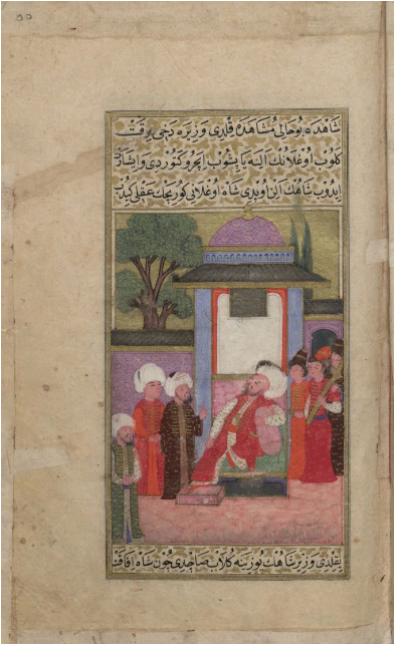 شاهده بو حالی مشاهده قلدی وزیره دخی
كلوب اوغلانك الینه یاپشوب ایچرو كتوردی و اشارت
ایدوب شاهك الن اوپدی شاه اوغلانی كوریجك عقلی كیدوب
یقلدی وزیر شاهك یوزینه كلاب صاچدی چون شاه افاقت